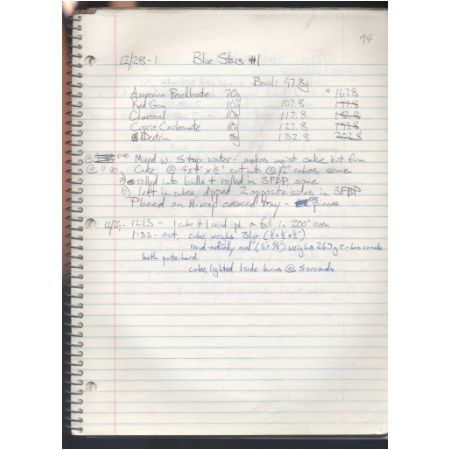 94
12/28-1 Blue Stars #1
Bowl: 97.8g
Ammonium Perchlorate 70g = 167.8
Red Gum 10g 107.8
Charcoal 10g 117.8
Copper Carbonate 10g 127.8
Dextrin 5g 132.8 202.8
Mixed w. 5 tsp water - makes moist cake but firm
@ 11:40 Cake @ cut into @ 1/2" cubes, some
rolled into balls & rolled in SFBP, some
left in cubes, dipped 2 opposite sides in SFBP
Placed on covered tray -
12/29- 1215 - 1 cake & 1 rond pl. on foil in 200° oven
1:33 - out. cube weighs
weighs 2.67g
both quite hard.
cube, lighted 1 side burns @ 5 seconds